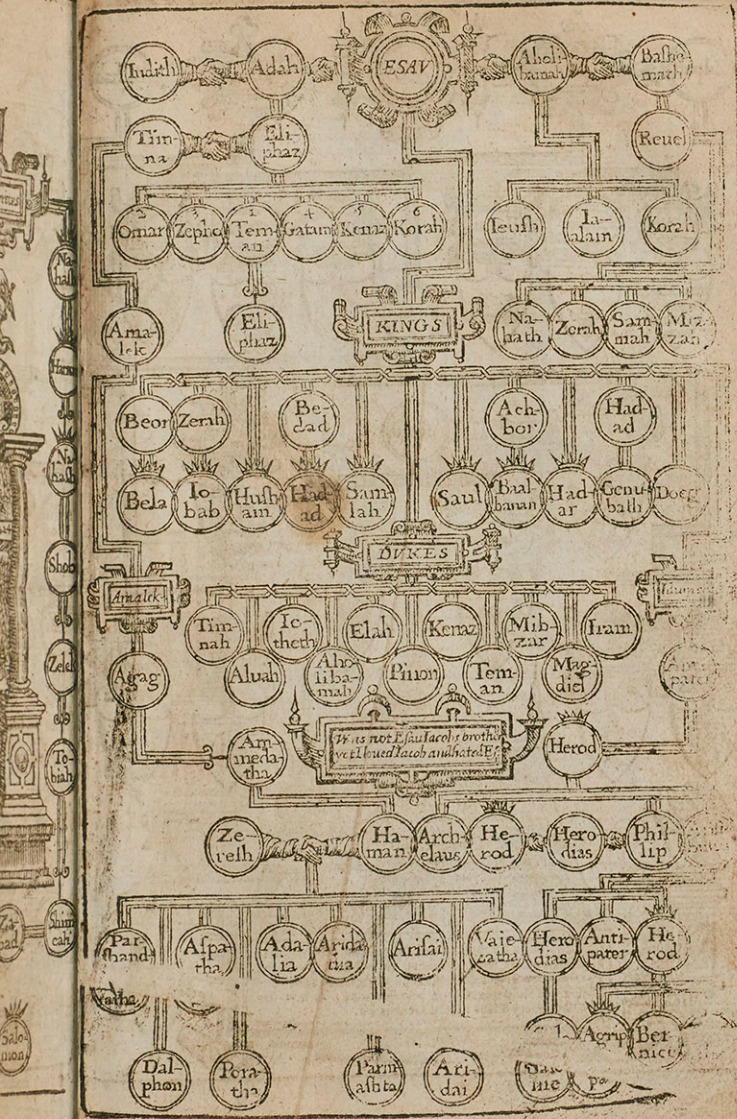 Iudith
Adah
ESAV
Aholi
bamah
Bashe
math
Tim-
na
Eli-
phaz
Reuel
2
3
1
4
5
6
Omar
Zepho
Tem-
an
Gatum
Kenaz
Korah
Ieush
Ia-
alam
Korah
Ama-
lek
Eli-
phaz
KINGS
Na-
hath
Zerah
Sam-
mah
Miz-
zah
Beor
Zerah
Be-
dad
Ach-
bor
Had-
ad
Bela
Io-
bab
Hush
am
Had-
ad
Sam-
lah
Saul
Baal-
hanan
Had-
ar
Genu-
bath
Doeg
DVKES
Amalek
Tim-
nah
Ie-
theth
Elah
Kenaz
Mib-
zar
Iram
Agag
Aluah
Aho-
liba-
mah
Pinon
Tem-
an
Mag-
diel
Was not Esau Iacobs brothe
yet I loued Iacob and hated Es
Am-
meda-
tha
Herod
Ze-
resh
Ha-
man
Arch-
elaus
He-
rod
Hero-
dias
Phil-
lip
Par-
shand
atha
Aspa-
tha
Ada-
lia
Arida-
tha
Arisai
Vaie-
zatha
Hero-
dias
Anti-
pater
He-
rod
Agrip
Ber-
nice
Dal-
phon
Pora-
tha
Parm
ashta
Ari-
dai
pa
Na-
hash
Shob
Zelek
To-
biah
Shim
eah
Salo-
mon